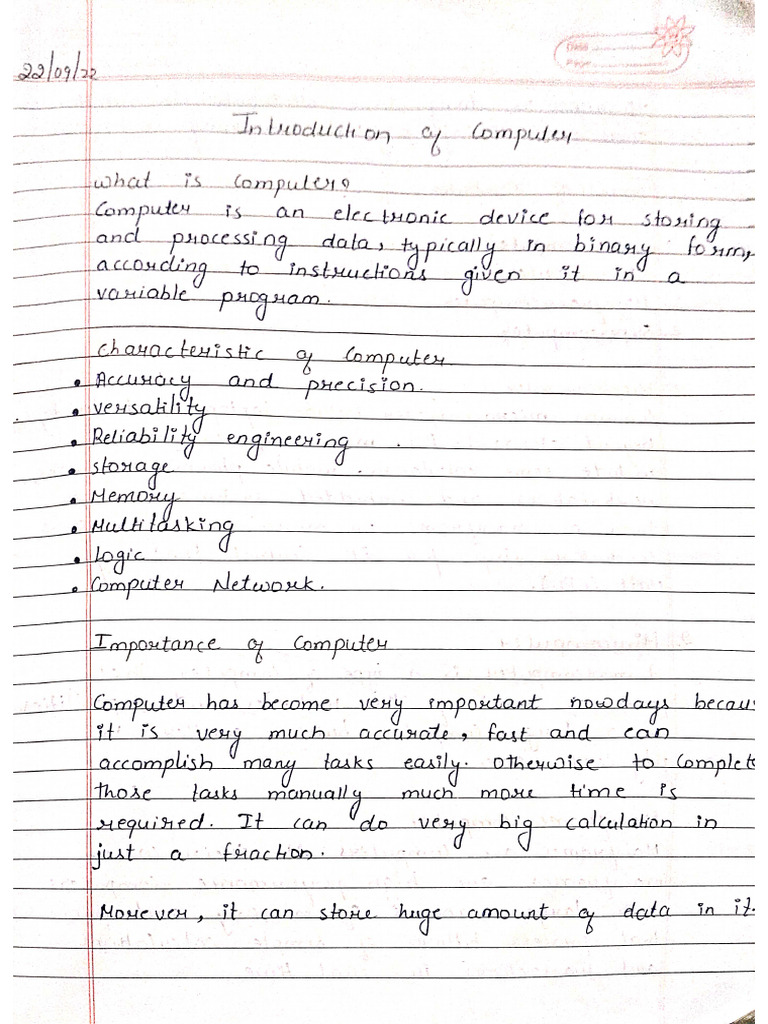 Date
Page
22/09/22
Introduction of Computer
What is Computer?
Computer is an electronic device for storing
and processing data, typically in binary form,
according to instructions given it in a
variable program.
Characteristic of Computer
• Accuracy and precision.
• Versatility
• Reliability engineering.
• Storage
• Memory
• Multitasking
• Logic
• Computer Network.
Importance of Computer
Computer has become very important nowdays becau
it is very much accurate, fast and can
accomplish many tasks easily. Otherwise to Complete
those tasks manually much more time is
required. It can do very big calculation in
just a fraction.
Morever, it can store huge amount of data in it.